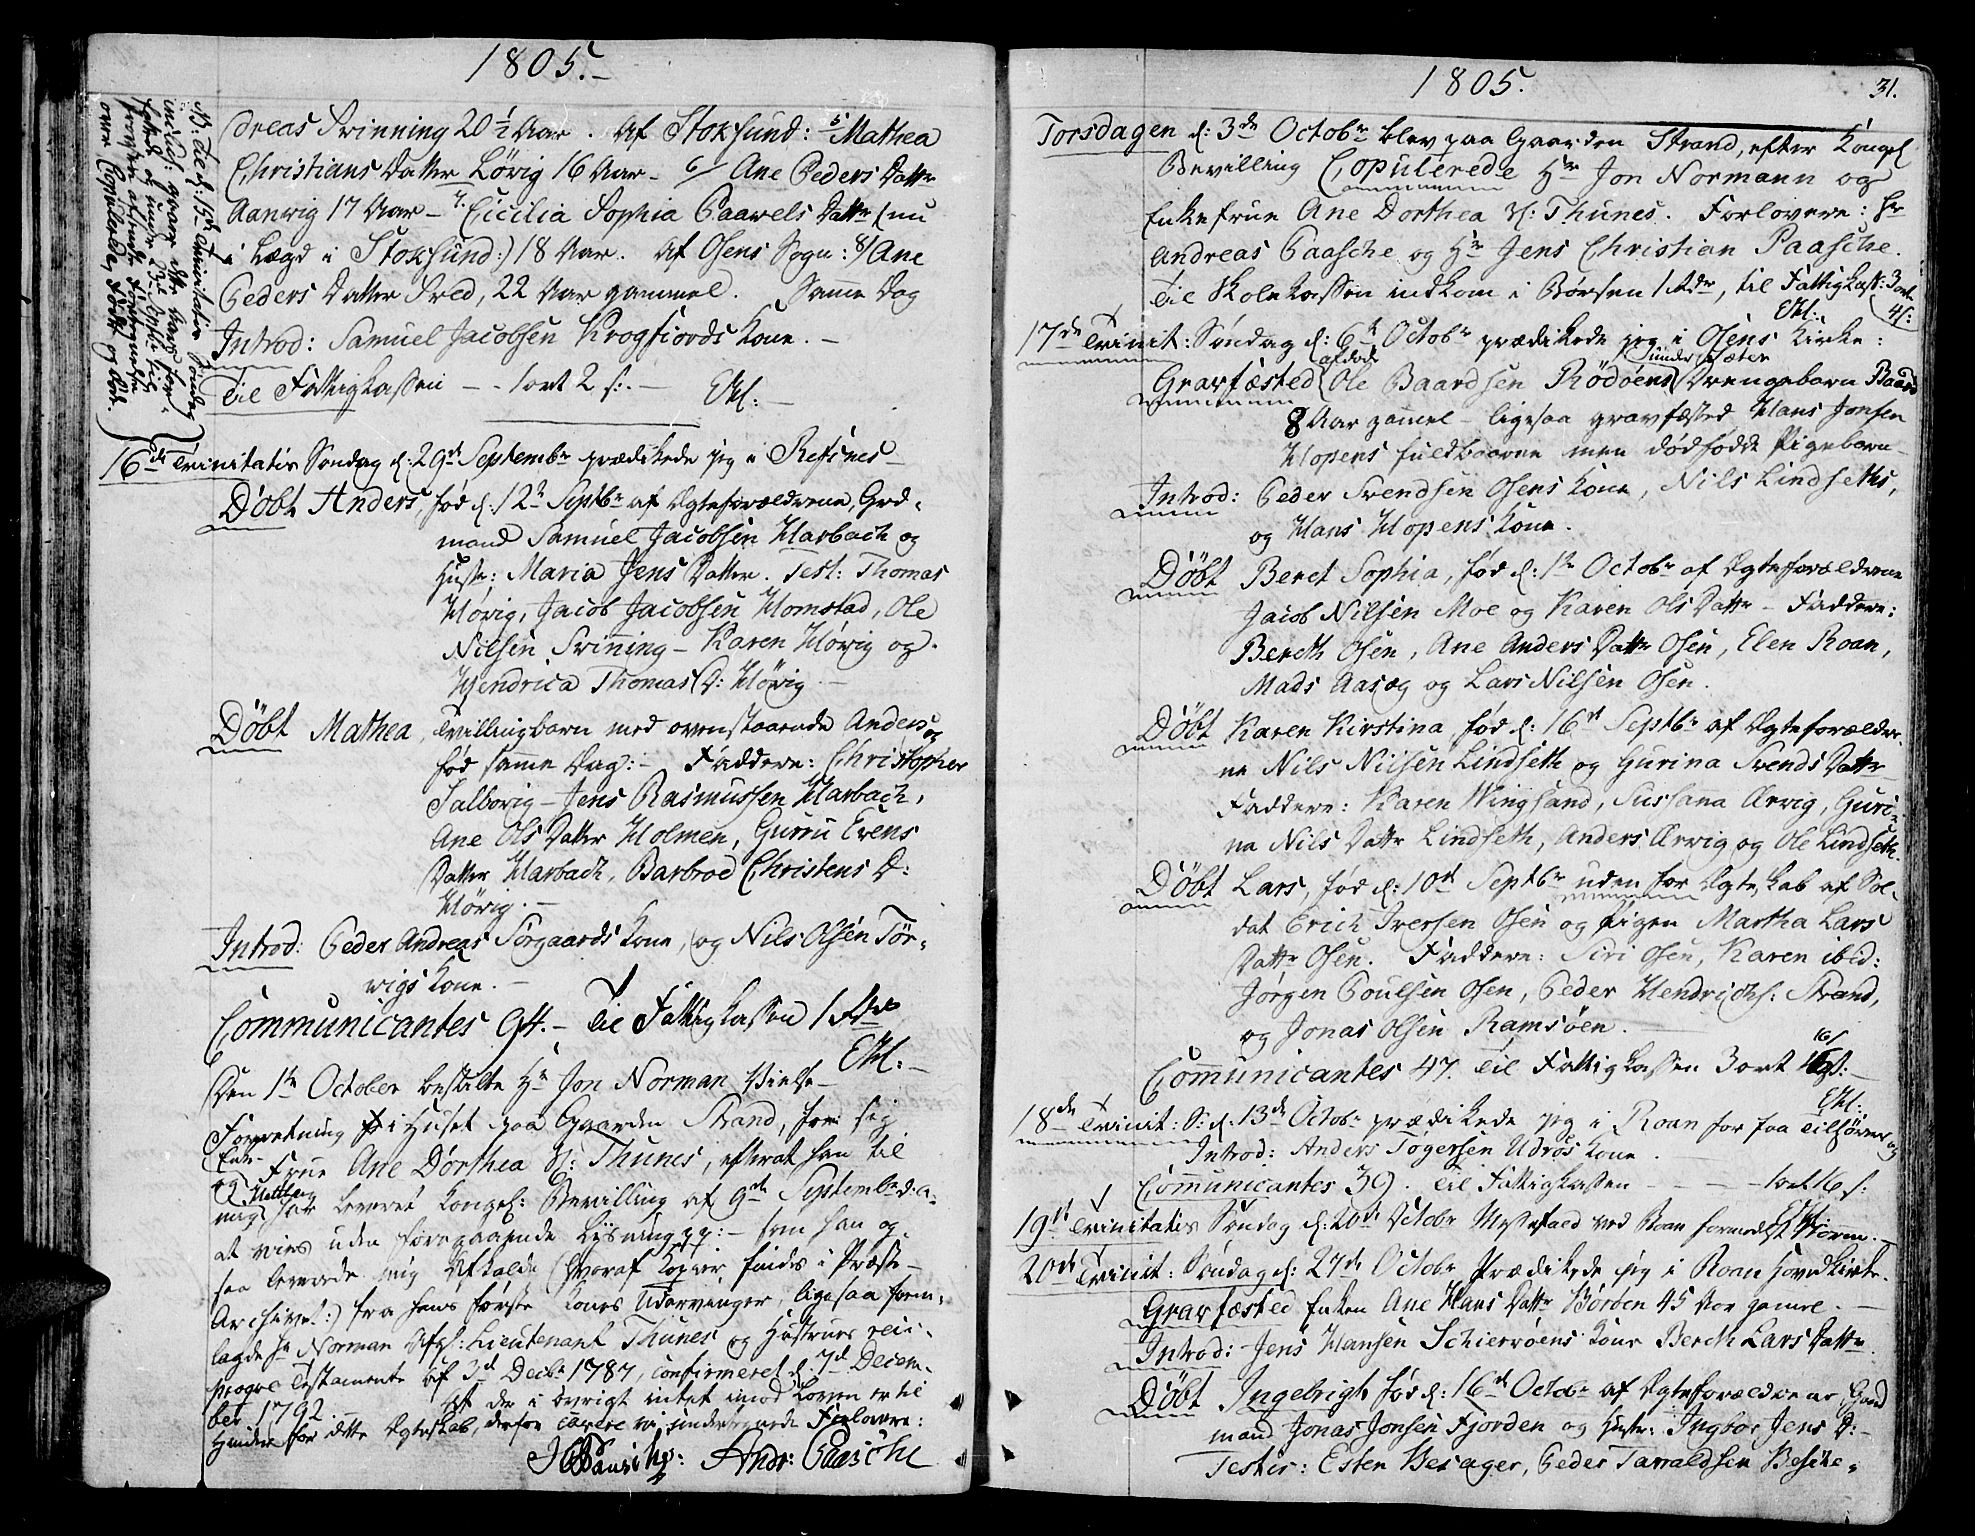 1805.-
dreas Svinning 20 1/2 Aar. Af Stoksund: 5 Mathea
Christians Datter Lörig 16 Aar - 6/ Ane Peders Datter
Aanwig 17 Aar - 7: Cicilia Sophia Paavels Datter (nu
i Lægd i Stoksund:) 18 Aar. Af Osens Sogn: 8/ Ane
Peders Datter Sved, 22 Aar gammel. Samme Dag
Introd: Samuel Jacobsen Krogfiords Kone. -
Til Fattigkassen - - 1 ort 2 s: -
16de Trinitatis Søndag d: 29de Septembr prædikede jeg i Refsnes -
Döbt Anders, fød d: 12te Septbr af Ægteforældrene, Grd-
mand Samuel Jacobsen Harbach og
Hustr: Maria Jens Datter. Test: Thomas
Hövig, Jacob Jacobsen Homstad, Ole
Nilsen Svinning - Karen Hövig og
Hendrica Thomas D: Hövig. -
Döbt Mathea, Tvillingbarn med ovenstaaende Anders og
fød samme Dag: - Faddere: Christopher
Salbovig - Jens Rasmussen Harbach,
Ane Ols Datter Holmen, Gurru Evens
Datter Harbach, Barbroe Christens D:
Hövig. -
Introd: Peder Andreas Sörgaards Kone, og Nils Olsen Tör-
wigs Kone. -
Communicantes 94. - Til Fattigkassen 1 Rdr
Den 1te October bestilte Hr Jon Norman Vielse-
Forretning i Huset paa Gaarden Strand, for sig
og Enke-Frue Ane Dorthea Sl: Thunes, efterat han til
mig har leveret Kongel: Bevilling af 9de Septembr d: a:
at vies uden foregaaende Lysning pp: - som han og-
saa leverede mig Afkald (hvoraf Copier findes i Præste-
Archivet:) fra hans første Kones Udarvinger, ligesaa frem-
lagde Hr Norman Afgl: Lieutenant Thunes og Hustrues reci-
proque Testamente af 3d Decbr 1787, confirmeret d: 7d Decem-
ber 1792. At der i övrigt intet imod Loven er til
Hinder for dette Ægteskab, derfor cavere vi undertegnede Forlovere:
Andr: Paasche
1805.
31.
Torsdagen d: 3de Octobr blev paa Gaarden Strand, efter Kongel
Bevilling Copulerede Hr Jon Normann og
Enkefrue Ane Dorthea Sl: Thunes. Forlovere: Hr
Andreas Paasche og Hr Jens Christian Paasche.
Til Skolekassen indkom i Bøssen 1 Rdr, til Fattigkass: 3 ort
4 s:
17de Trinit: Søndag d: 6te Octobr prædikede jeg i Osens Kirke:
Gravfæsted afdöde Ole Baardsen Rödöens Drengebarn Baard
8 Aar gamel - ligesaa gravfæsted Hans Jonsen
Hopens fuldbaarne men dødfødde Pigebarn -
Introd: Peder Svendsen Osens Kone, Nils Lindseths,
og Hans Hopens Kone.
Döbt Beret Sophia, fød d: 1te Octobr af Ægteforældrene
Jacob Nilsen Moe og Karen Ols Datter - Faddere:
Bereth Osen, Ane Anders Datter Osen, Elen Roan,
Mads Aasæg og Lars Nilsen Osen.
Döbt Karen Kirstina, fød d: 16de Septbr af Ægteforældre-
ne Nils Nilsen Lindseth og Gurina Svends Datter
Faddere: Karen Wingsand, Sussana Ærvig, Guri-
na Nils Datter Lindseth, Anders Ærvig og Ole Lindseth.
Döbt Lars, fød d: 10de Septbr uden for Ægteskab af Sol-
dat Erich Iversen Osen og Pigen Martha Lars
Datter Osen. Faddere: Siri Osen, Karen ibid:
Jörgen Poulsen Osen, Peder Hendrichs: Strand,
og Jonas Olsen Ramsöen.
Communicantes 47. Til Fattigkassen 3 ort 16 s: -
18de Trinit: S: d: 13de Octobr prædikede jeg i Roan for faa Tilhörere og
Introd: Anders Tögersen Udrös Kone.
Communicantes 39. Til Fattigkassen - - - 1 ort 16 s:
19de Trinitatis Søndag d: 20de Octobr Messefald ved Roan formedelst Storm. -
20de Trinit: Søndag d: 27de Octobr Prædikede jeg i Roan Hovedkirke.
Gravfæsted Enken Ane Hans Datter Böröen 45 Aar gamel. -
Introd: Jens Hansen Schierröens Kone Bereth Lars Datter.
Döbt Ingebrigt, fød d: 16de Octobr af Ægteforældrene, Gaard-
mand Jonas Jonsen Fjorden og Hustr: Ingbor Jens D: -
Testes: Esten Besager, Peder Tarraldsen Beske-